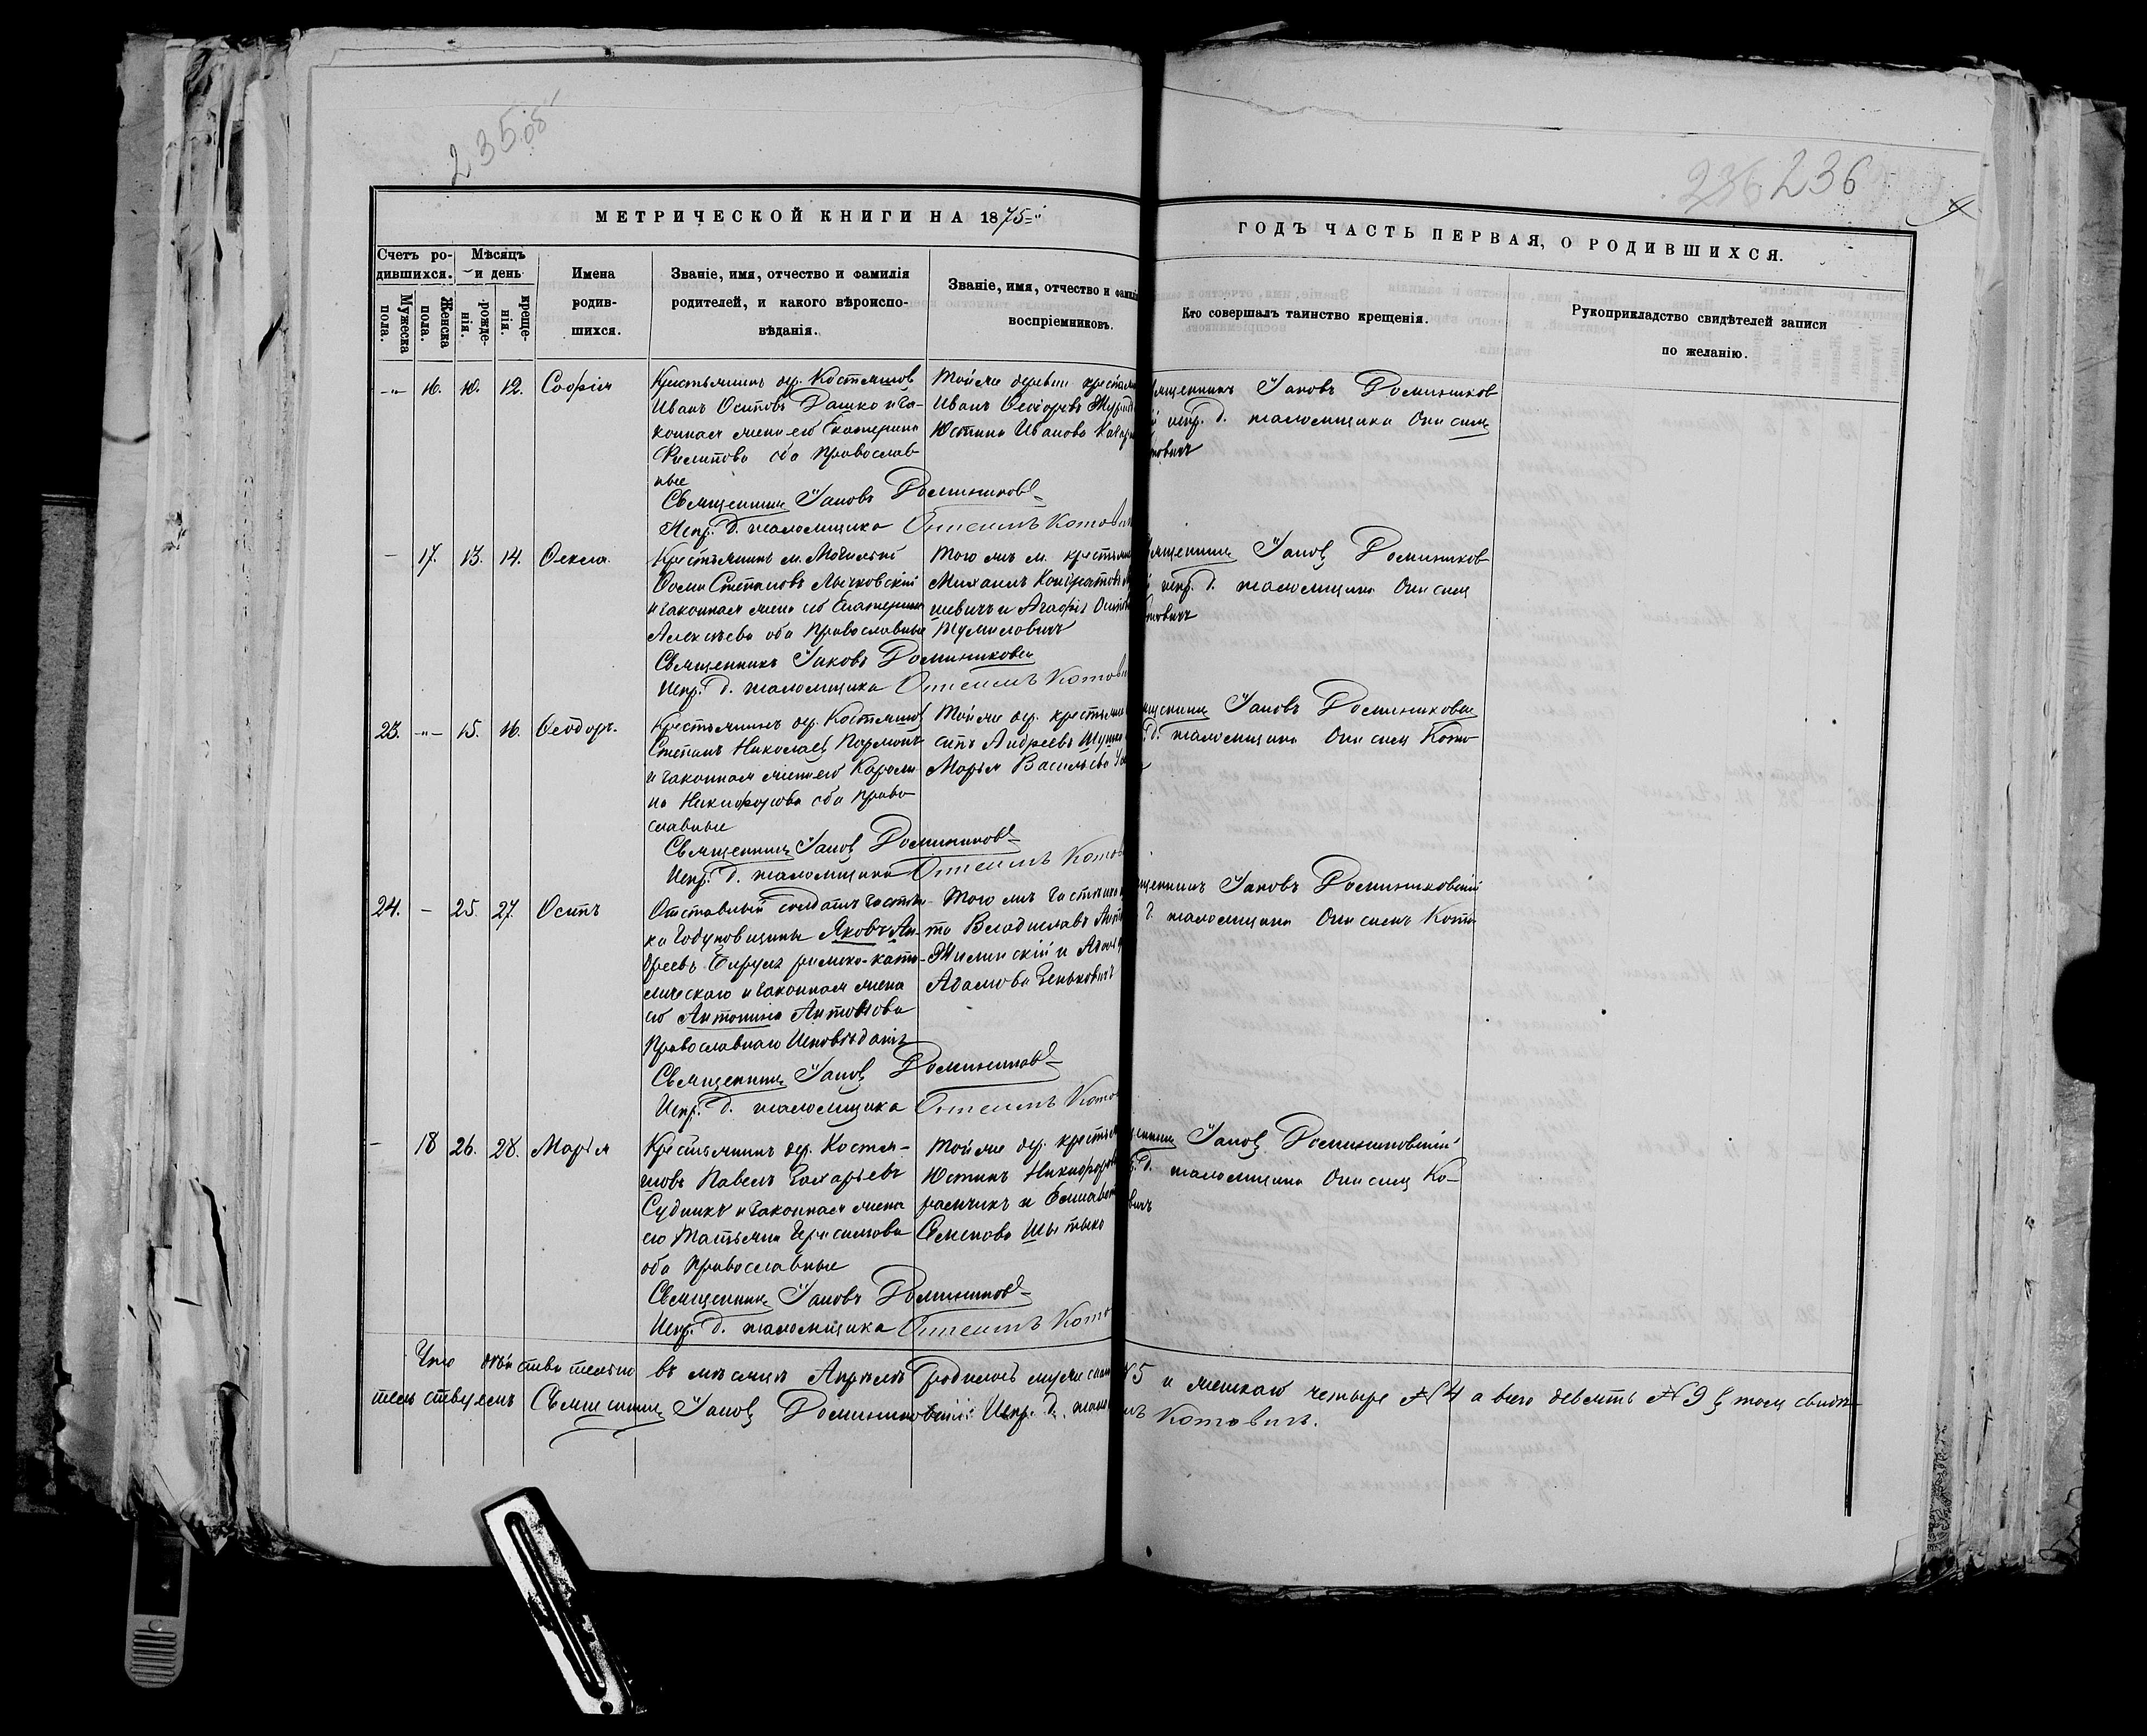 235 об
236 236
МЕТРИЧЕСКОЙ КНИГИ НА 1875-й
ГОДЪ ЧАСТЬ ПЕРВАЯ, О РОДИВШИХСЯ.
Счетъ ро-
дившихся.
Мужеска
пола.
Женска
пола.
Мѣсяцъ
и день
рожде-
нія.
креще-
нія.
Имена
родив-
шихся.
Званіе, имя, отчество и фамилія
родителей, и какого вѣроиспо-
вѣданія.
Званіе, имя, отчество и фамилі
воспріемниковъ.
Кто совершалъ таинство крещенія.
Рукоприкладство свидѣтелей записи
по желанію.
-"- 16. 10. 12. Софія
Крестьянинъ дер. Костяшов
Иванъ Осиповъ Дашко и за-
конная жена его Екатерина
Филипова оба Православ
ные
Священникъ Іаковъ Доминиковс
Испр. д. псаломщика Онисимъ Котови
Той же деревни крестьян
Иванъ Ѳеодоровъ
Юстина Иванова
ященникъ Іаковъ Домиников
й испр. д. псаломщика Онисимъ
товичъ
- 17. 13. 14. Ѳекла.
Крестьянинъ м.
Ѳома Степановъ Лычковскій
и законная жена его Екатерина
Алексѣева оба Православные
Священникъ Іаковъ Доминиковск
Испр. д. псаломщика Онисимъ Котови
Того же м. крестьян
Михаилъ Кондратовъ
шевичъ и Агафія Осипов
Шумиловичъ
ященникъ Іаковъ Домиников
й испр. д. псаломщика Онисимъ
товичъ
23. -"- 15. 16. Ѳеодоръ.
Крестьянинъ дер. Костяшов
Степанъ Николаевъ
и законная жена его Кароли
на Никифорова оба Право
славные
Священникъ Іаковъ Доминиковс
Испр. д. псаломщика Онисимъ Котов
Той же дер. крестьян
сипъ Андреевъ
Марія Васильева
щенникъ Іаковъ Доминиковск
д. псаломщика Онисимъ Кото
24. - 25. 27. Осипъ
Отставный солдатъ застѣн-
ка Годуновщины Яковъ Ан-
дреевъ Бируля римско-като-
лическаго и законная жена
его Антонина Антонова
Православнаго Исповѣданія
Священникъ Іаковъ Доминиковс
Испр. д. псаломщика Онисимъ Кото
Того же застѣнка
та Владиславъ Анто
Жилинскій и
Адамова Зеньковичъ
щенникъ Іаковъ Доминиковскій
д. псаломщика Онисимъ Кото
- 18 26. 28. Марія
Крестьянинъ дер. Костя-
шовъ Павелъ Захаріевъ
Судникъ и законная жена
его Татьяна Герасимова
оба Православные
Священникъ Іаковъ Доминиковс
Испр. д. псаломщика Онисимъ Кото
Той же дер. крестьян
Юстинъ Никифоровъ
раенчикъ и Елисавет
Семенова Шытько
щенникъ Іаковъ Доминиковскій
д. псаломщика Онисимъ Ко-
вичъ
Что дѣйствительно въ мѣсяцѣ Апрѣлѣ родилось мужескаго №5 и женскаго четыре №4 а всего девять №9 въ томъ свидѣ-
тельствуемъ Священникъ Іаковъ Доминиковскій Испр. д. псалом Котовичъ.